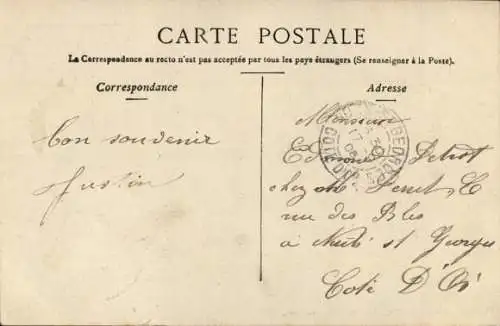 CARTE POSTALE
La Correspondence au recto n'est pas acceptée par tous les pays étrangers (Se renseigner à la Poste).
Correspondance
Bon souvenir
Justin
Adresse
Monsieur
Edmond
chez M
rue des
à Nuits st Georges
Cote D'Or